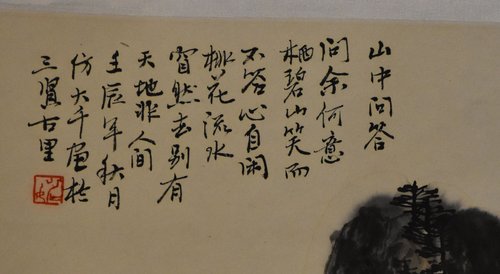 山中问答
问余何意
栖碧山笑而
不答心自闲
桃花流水
窅然去别有
天地非人间
壬辰年秋月
仿大千画于
三贤古里